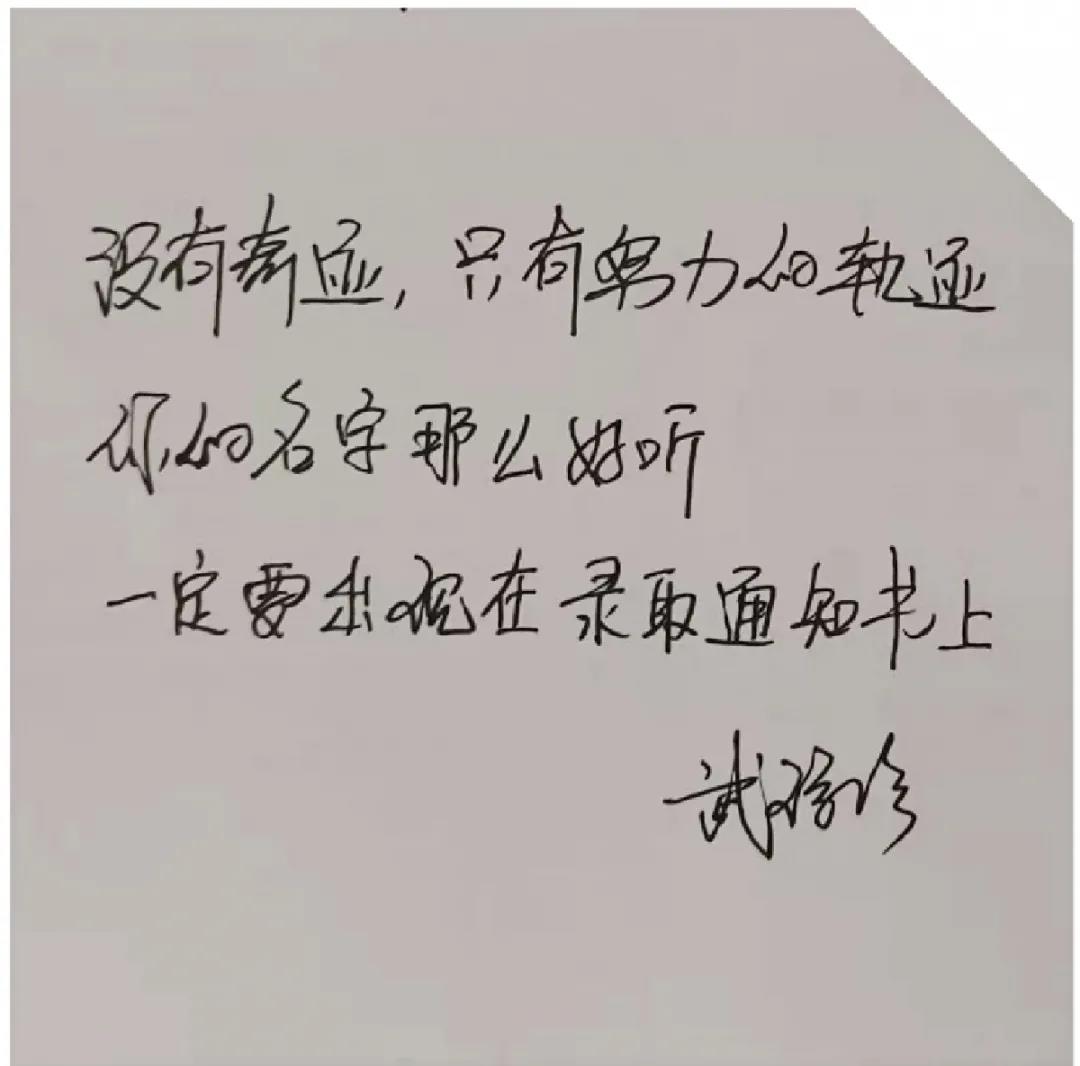 没有奇迹，只有努力的轨迹
你的名字那么好听
一定要出现在录取通知书上